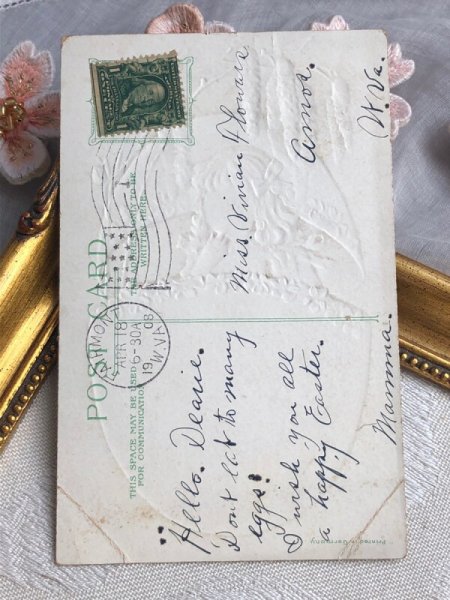 POST CARD.
THIS SPACE MAY BE USED
FOR COMMUNICATION
THE ADDRESS ONLY TO BE
WRITTEN HERE.
APR 18
6-30A
1908
W.VA.
Hello. Dearie.
Dont eat to many
eggs.
I wish you all
a happy Easter.
Mamma.
Miss. Vivian
Amos.
W. Va.
Printed in Germany